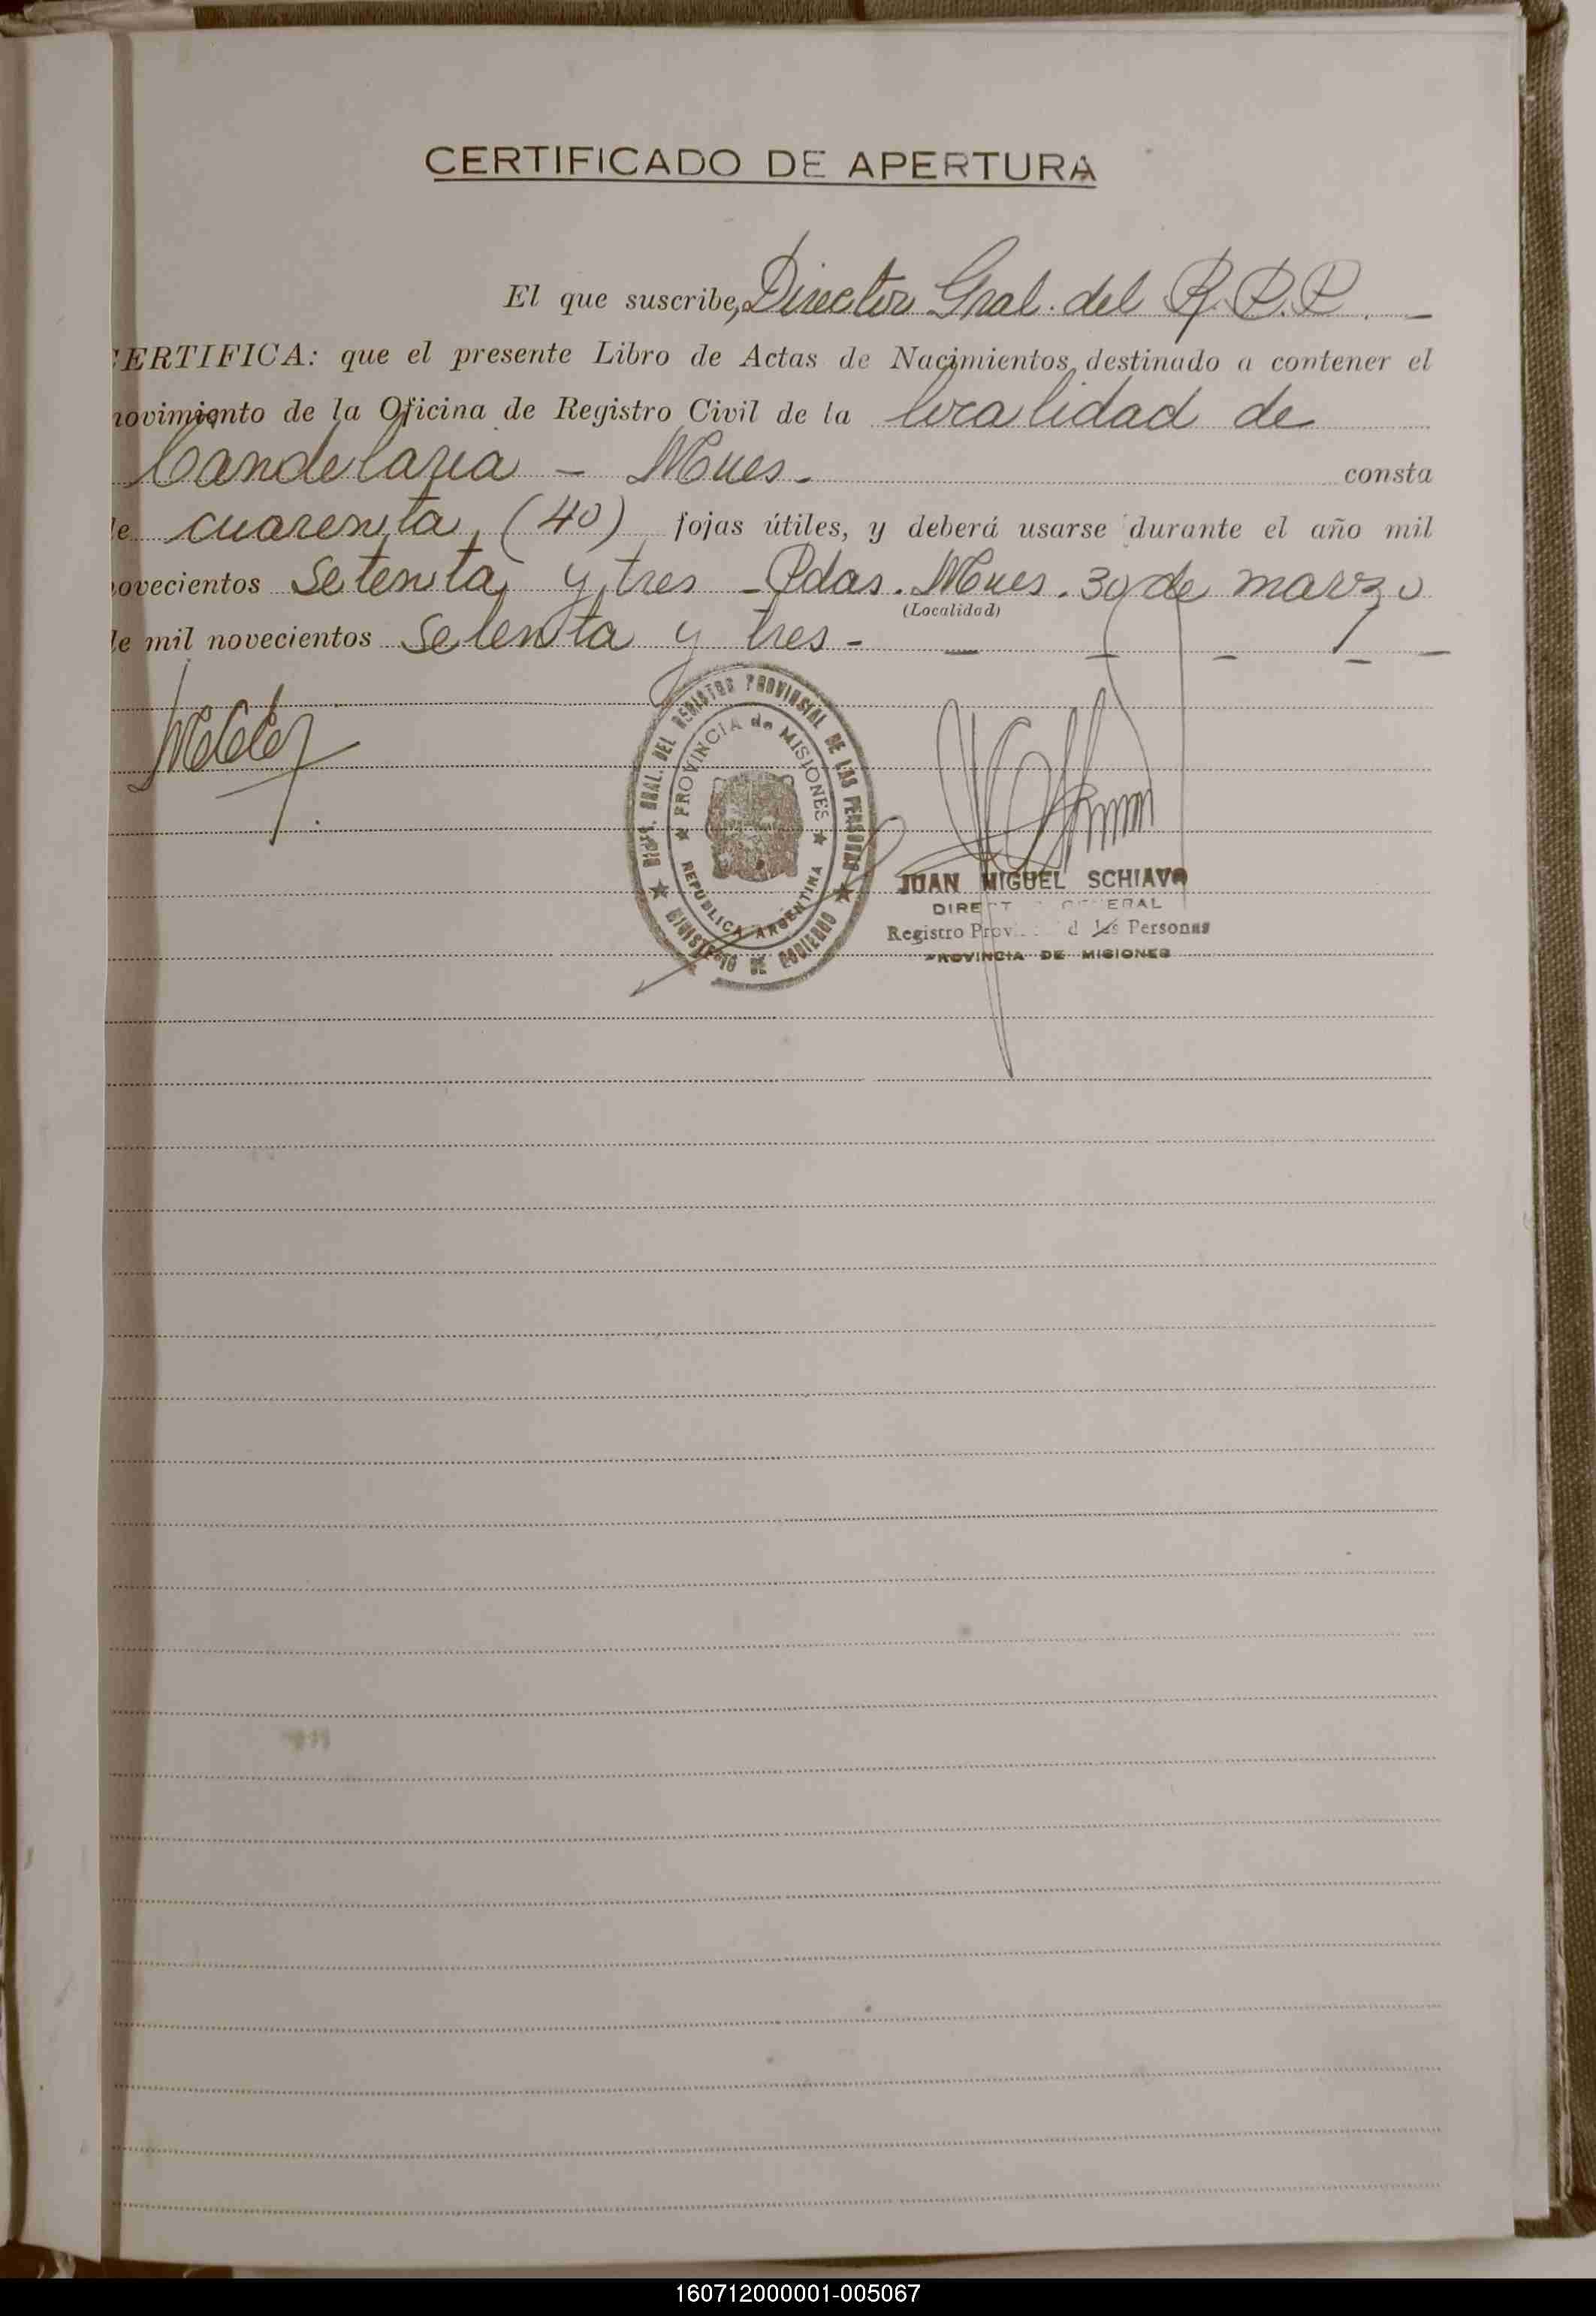 CERTIFICADO DE APERTURA
El que suscribe, Director Gral. del R.P.P. -
CERTIFICA: que el presente Libro de Actas de Nacimientos, destinado a contener el
movimiento de la Oficina de Registro Civil de la localidad de
Candelaria - Mnes. consta
de cuarenta, (40) fojas útiles, y deberá usarse durante el año mil
novecientos Setenta y tres - Pdas. Mnes. 30 de marzo
(Localidad)
de mil novecientos Setenta y tres -
DIRECC. GRAL. DEL REGISTRO PROVINCIAL DE LAS PERSONAS
PROVINCIA de MISIONES
REPUBLICA ARGENTINA
MINISTERIO DE GOBIERNO
JUAN MIGUEL SCHIAVO
DIRECT GENERAL
Registro Prov d las Personas
PROVINCIA DE MISIONES
160712000001-005067